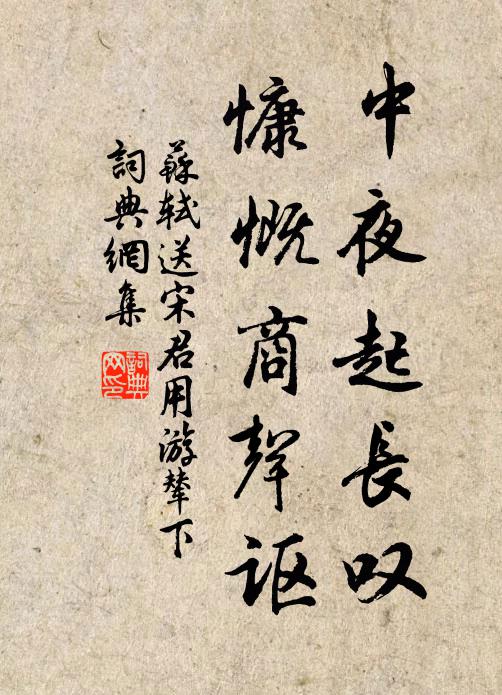 中夜起長叹
慷慨商聲讴
蘇轼送宋君用游辇下
詞典網集
詞典网印